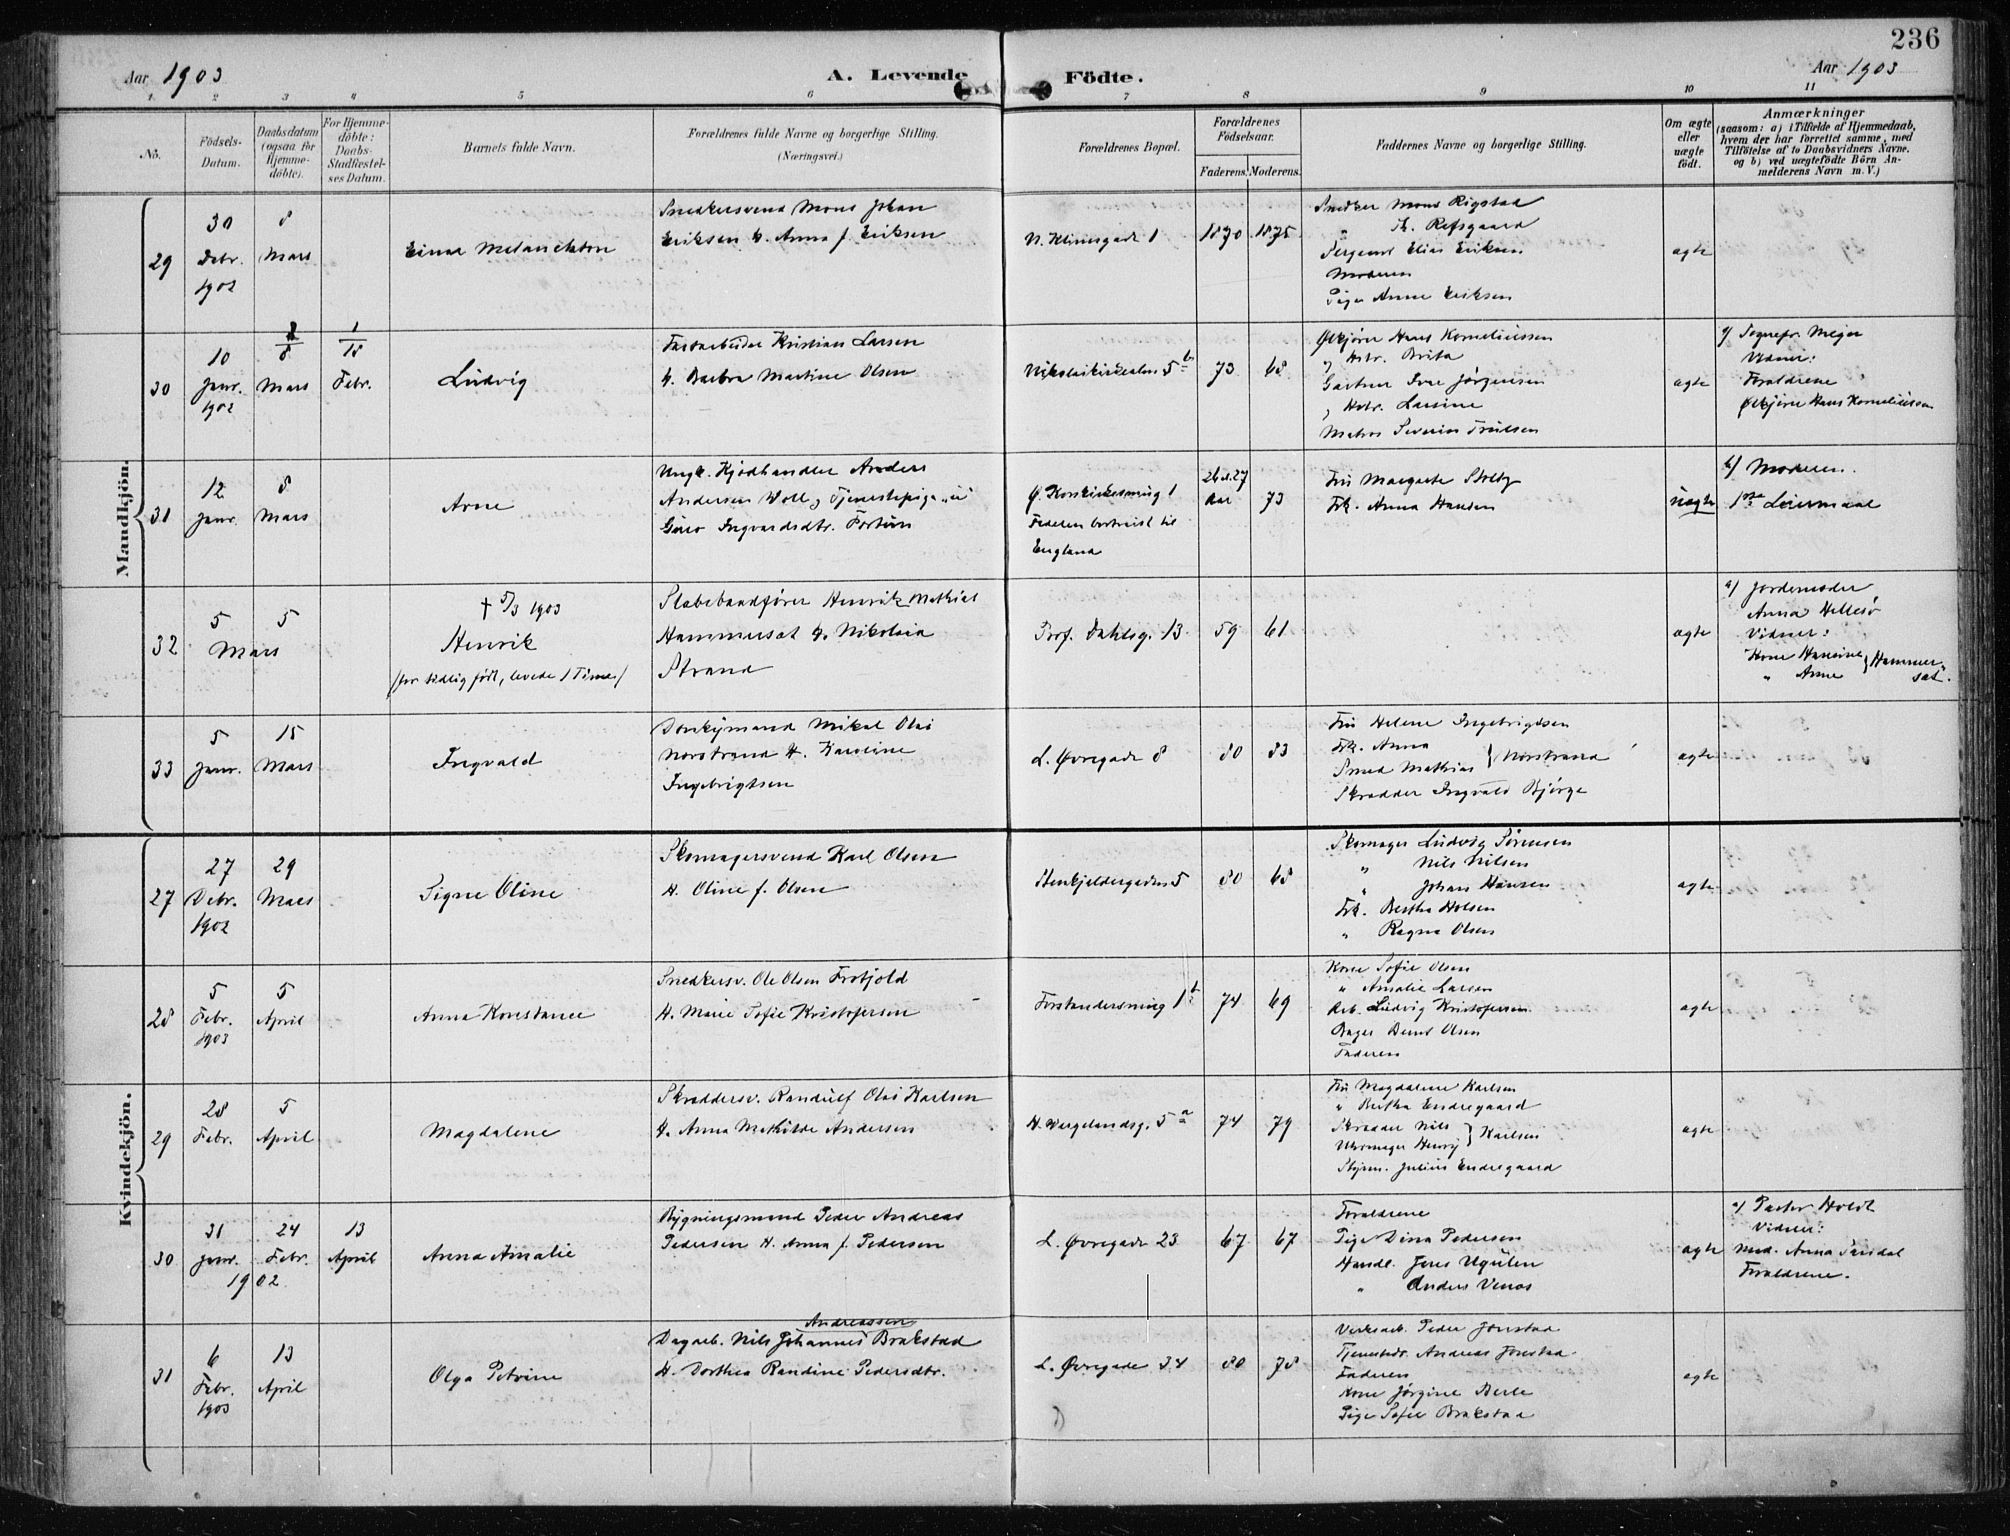 236
Aar 1903
A. Levende Födte.
Aar 1903
1 2 3 4 5 6 7 8 9 10 11
No.
Födsels-Datum.
Daabsdatum (ogsaa for Hjemme-döbte).
For Hjemme-döbte: Daabs-Stadfæstel-ses Datum.
Barnets fulde Navn.
Forældrenes fulde Navne og borgerlige Stilling.
(Næringsvei.)
Forældrenes Bopæl.
Forældrenes Födselsaar.
Faderens. Moderens.
Faddernes Navne og borgerlige Stilling.
Om ægte eller uægte födt.
Anmærkninger
(saasom: a) i Tilfælde af Hjemmedaab, hvem der har forrettet samme, med Tilföielse af to Daabsvidners Navne, og b) ved uægtefödte Börn An-melderens Navn m. V.)
Mandkjön.
29
30 Debr. 1902
8 Mars
Einar Melanchton
Snedkersvend Mons Johan
Eriksen H. Anna f. Eriksen
N. Klinegade 1
1870 1875
Snedker Mons Rigstad
" Refsgaard
Sergeant Elias Eriksen
Moderen
Pige Anna Eriksen
ægte
30
10 Janr. 1902
8 Mars
1 15 Febr.
Ludvig
Kristian Larsen
H. Barbra Martine Olsen
Nikolaikirkealm. 5 b
73 68
Hans Korneliussen
" Hstr. Brita
Gartner Ivar Jørgensen
" Hstr. Larsine
Matros Severin Trulsen
ægte
a/ Sognepr. Meyer
Vidner:
Forældrene
Hans Korneliussen
31
12 Janr.
8 Mars
Arne
Ungk. Kjødhandler Anders
Andersen Woll, Tjenestepige
Guro Ingvardsdtr. Fortun
Ø. Korskirkesmug 1
Faderen bortreist til
England
26 a 27 Aar 73
Fru Margarete Stoltz
Frk. Anna Hansen
uægte
b/ Moderen.
1ste Leiermaal
32
5 5
Mars
† 5/3 1903
Henrik
(for tidlig født, levede 1 Time)
Stabsbaadfører Henrik Mathias
Hammersat H. Nikolaia
Strand
Prof. Dahlsg. 13
59 61
ægte
a/ Jordemoder
Anna Hellesø
Vidner:
Kone Hansine } Hammer-
" Anne } sat.
33
5 Janr.
15 Mars
Ingvald
Donkeymand Mikal Olai
Norstrand H. Karoline
Ingebrigtsen
L. Øvregade 8
80 83
Fru Helene Ingebrigtsen
Frk. Anna } Norstrand
Smed Mathias
Skrædder Ingvald Bjørge
ægte
Kvindekjön.
27
27 Debr. 1902
29 Mars
Signe Oline
Skomagersvend Karl Olsen
H. Oline f. Olsen
Stenkjeldergaden 5
80 68
Skomager Ludvig Sørensen
" Nils Nilsen
" Johan Hansen
Frk. Bertha Holsen
" Ragna Olsen
ægte
28
5 Febr. 1903
5 April
Anna Konstance
Snedkersv. Ole Olsen Frotjold
H. Marie Sofie Kristofersen
Forstandersmug 1 b
74 69
Kone Sofie Olsen
" Amalie Larsen
Arb. Ludvig Kristofersen
Bager Bernt Olsen
Faderen
ægte
29
28 Febr.
5 April
Magdalene
Skræddersv. Randulf Olai Karlsen
H. Anna Mathilde Andersen
H. Wergelandsg. 5 a
74 79
Fru Magdalene Karlsen
" Bertha Endregaard
Skrædder Nils } Karlsen
Uhrmager Henry
Styrm. Julius Endregaard
ægte
30
31 Janr. 1902
24 Febr.
13 April
Anna Amalie
Bygningsmand Peder Andreas
Pedersen H. Anna f. Pedersen
L. Øvregade 23
67 67
Forældrene
Pige Dina Pedersen
Handl. Jens Ugulen
" Anders Venos
ægte
a/ Pastor Holdt
Vidner:
Mad. Anna Sandal
Forældrene.
31
6 Febr. 1903
13 April
Olga Petrine
Andreassen
Dagarb. Nils Johannes Brakstad
H. Dorthea Randine Pedersdtr.
L. Øvregade 34
80 78
Verksarb. Peder Jonstad
Tjenestedr. Andreas Jonstad
Faderen
Kone Jørgine Berle
Pige Sofie Brakstad
ægte